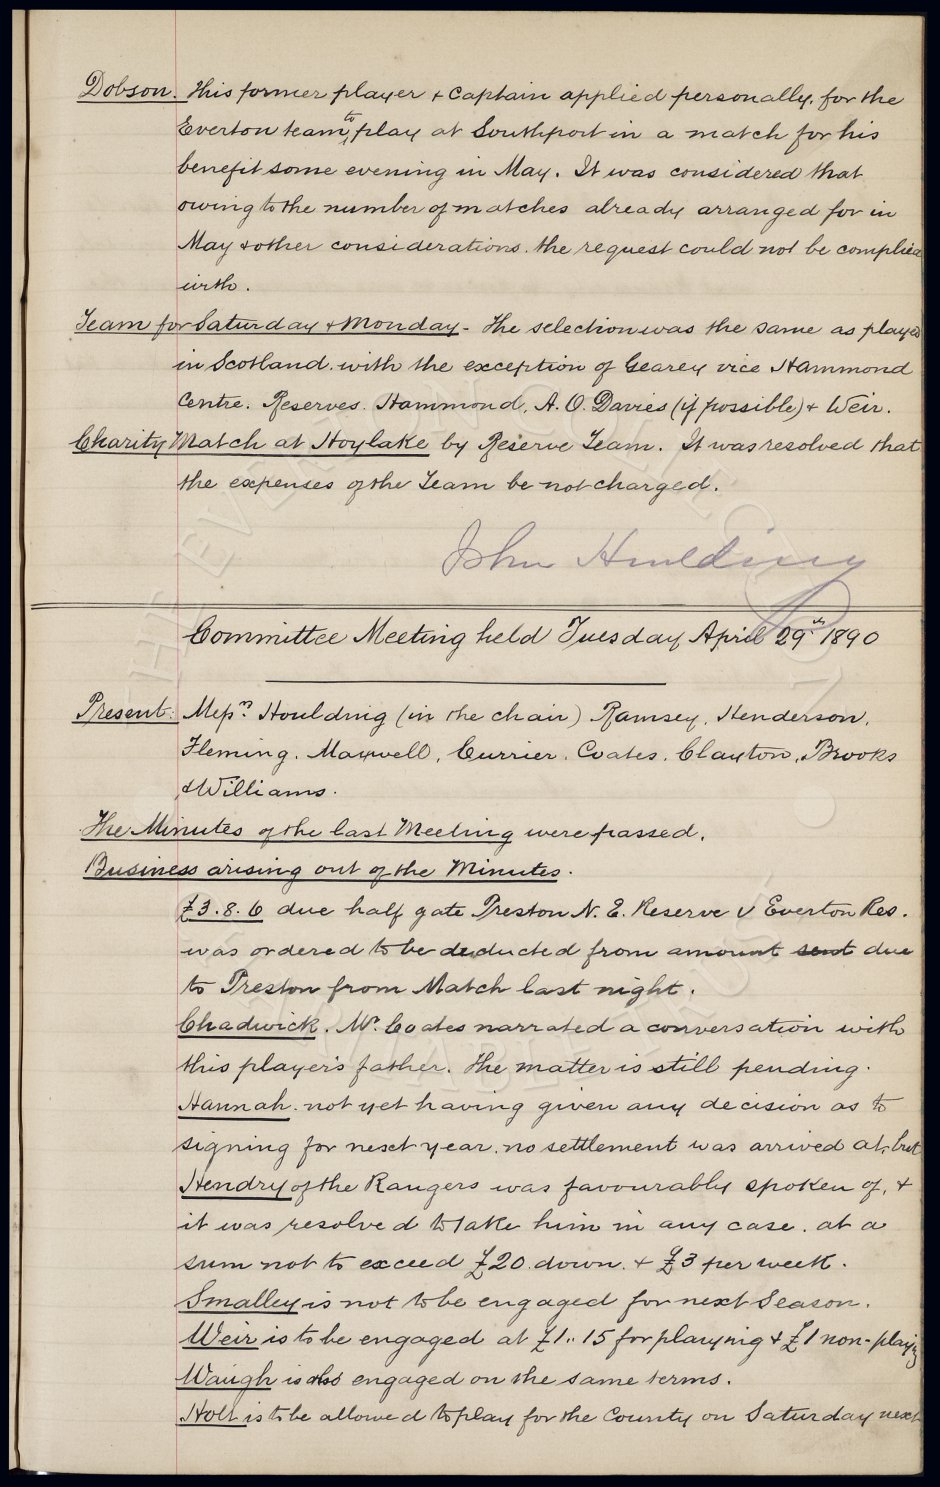 Dobson. This former player & Captain applied personally, for the
Everton team to play at Southport in a match for his
benefit some evening in May. It was considered that
owing to the number of matches already arranged for in
May & other considerations. the request could not be complied
with.
Team for Saturday & Monday - The selection was the same as played
in Scotland. with the exception of Gearey vice Hammond
Centre. Reserves. Hammond, A. O. Davies (if possible) & Weir.
Charity Match at Hoylake by Reserve Team. It was resolved that
the expenses of the Team be not charged.
John Houlding
Committee Meeting held Tuesday April 29th 1890
Present: Messrs Houlding (in the chair) Ramsey, Henderson,
Fleming. Maxwell, Currier. Coates. Clayton, Brooks
& Williams.
The Minutes of the last Meeting were passed.
Business arising out of the Minutes.
£3.8.6 due half gate Preston N. E. Reserve v Everton Res.
was ordered to be deducted from amount sent due
to Preston from Match last night.
Chadwick. Mr. Coates narrated a conversation with
this player's father. The matter is still pending.
Hannah. not yet having given any decision as to
signing for next year. no settlement was arrived at. but
Hendry of the Rangers was favourably spoken of, &
it was resolved to take him in any case. at a
sum not to exceed £20 down. & £3 per week.
Smalley is not to be engaged for next Season.
Weir is to be engaged at £1..15 for playing & £1 non-playing
Waugh is also engaged on the same terms.
Holt is to be allowed to play for the County on Saturday next
THE EVERTON COLLECTION
CHARITABLE TRUST